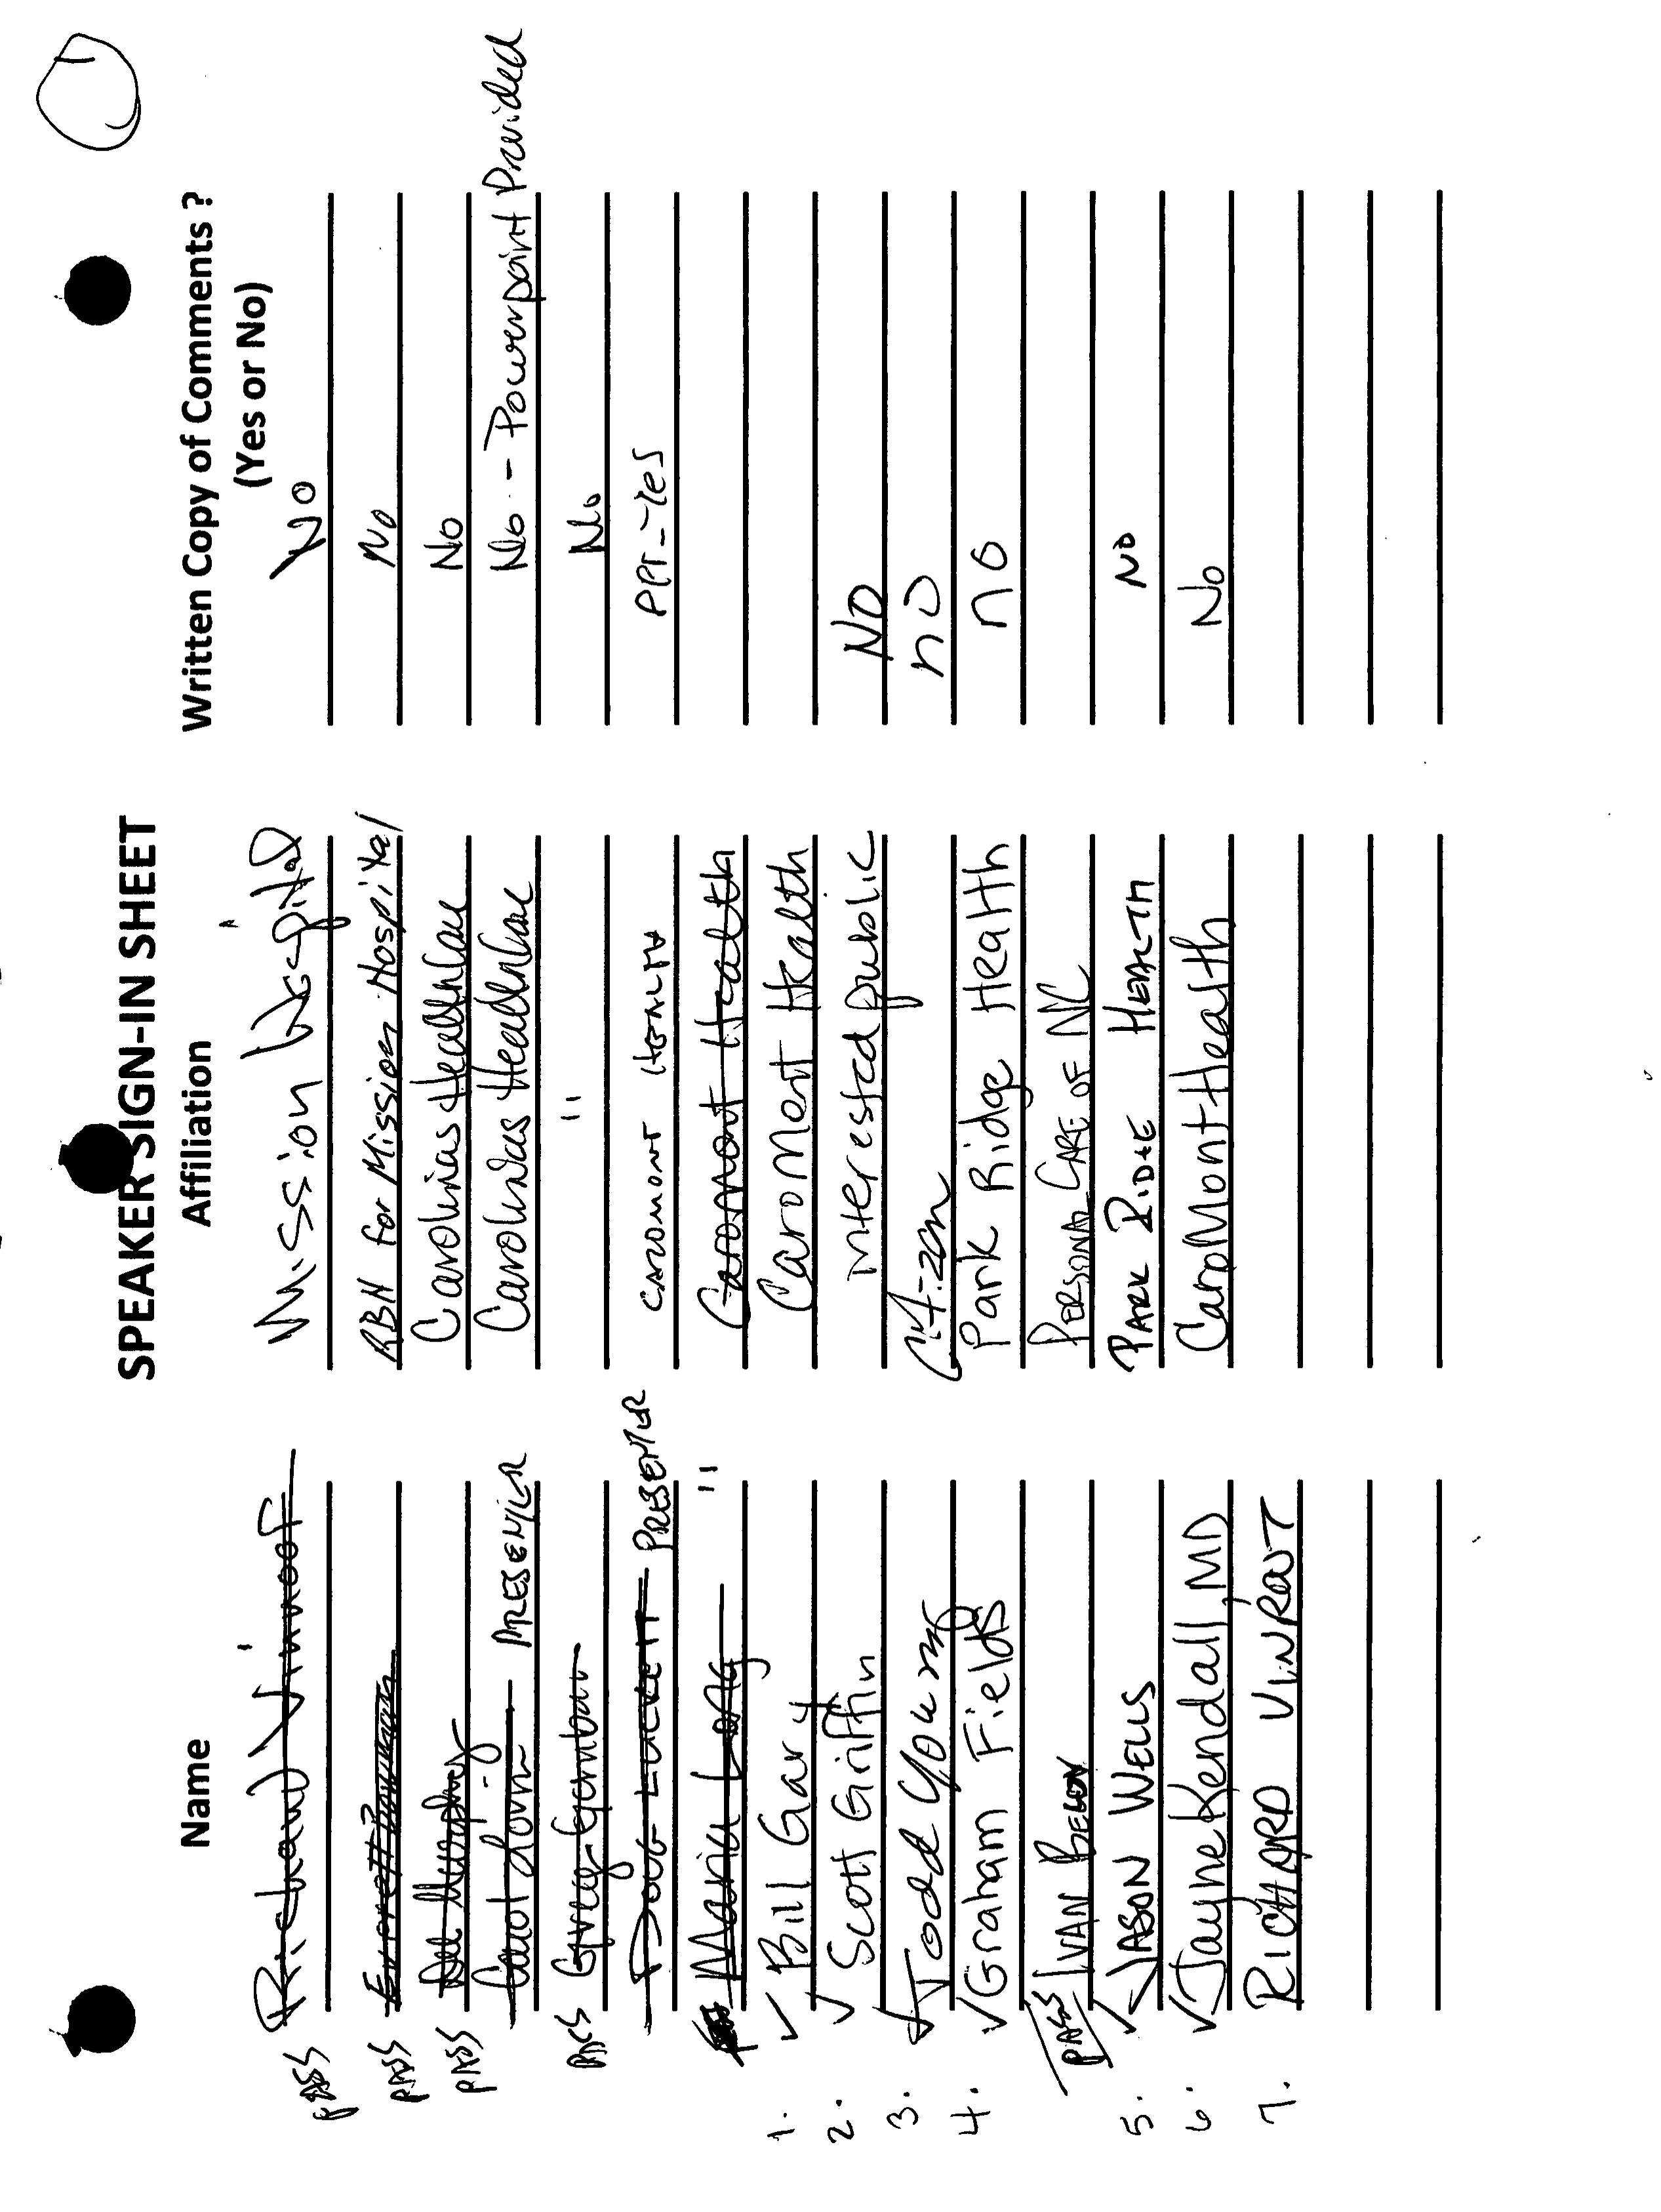 SPEAKER SIGN-IN SHEET
Name Affiliation Written Copy of Comments ?
(Yes or No)
PASS Richard Vinroot Mission Hospital No
PASS RBH for Mission Hospital No
PASS Del Murphy Carolinas HealthCare No
Carol Lovin PRESENTER Carolinas HealthCare No - Powerpoint Provided
PASS Greg " No
DOUG LUCKETT PRESENTER CAROMONT HEALTH PPT-Yes
Maria Long " Caromont Health
1. ✓ Bill Gary CaroMont Health
2. ✓ Scott Griffin interested public No
3. ✓ Todd Young Citizen no
4. ✓ Graham Fields Park Ridge Health no
PASS IVAN BELOV PERSONAL CARE OF NC
5. ✓ JASON WELLS PARK RIDGE HEALTH NO
6. ✓ Jayne Kendall, MD CaroMont Health No
7. RICHARD VINROOT